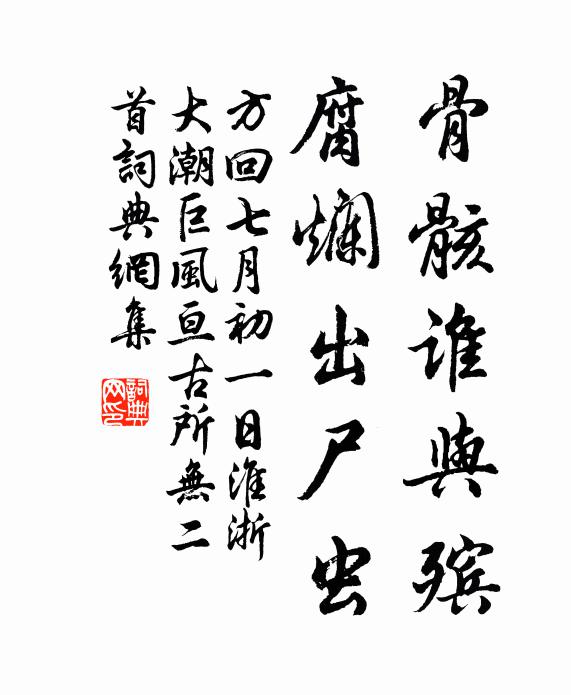 骨骸谁與殡
腐爛出尸虫
方回七月初一日淮浙
大潮巨風亘古所無二
首詞典網集
詞典
网印